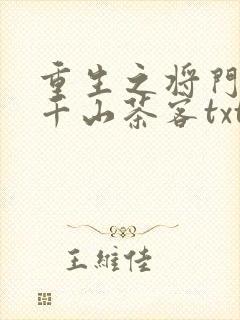 重生之将门
千山茶客txt
王維佳